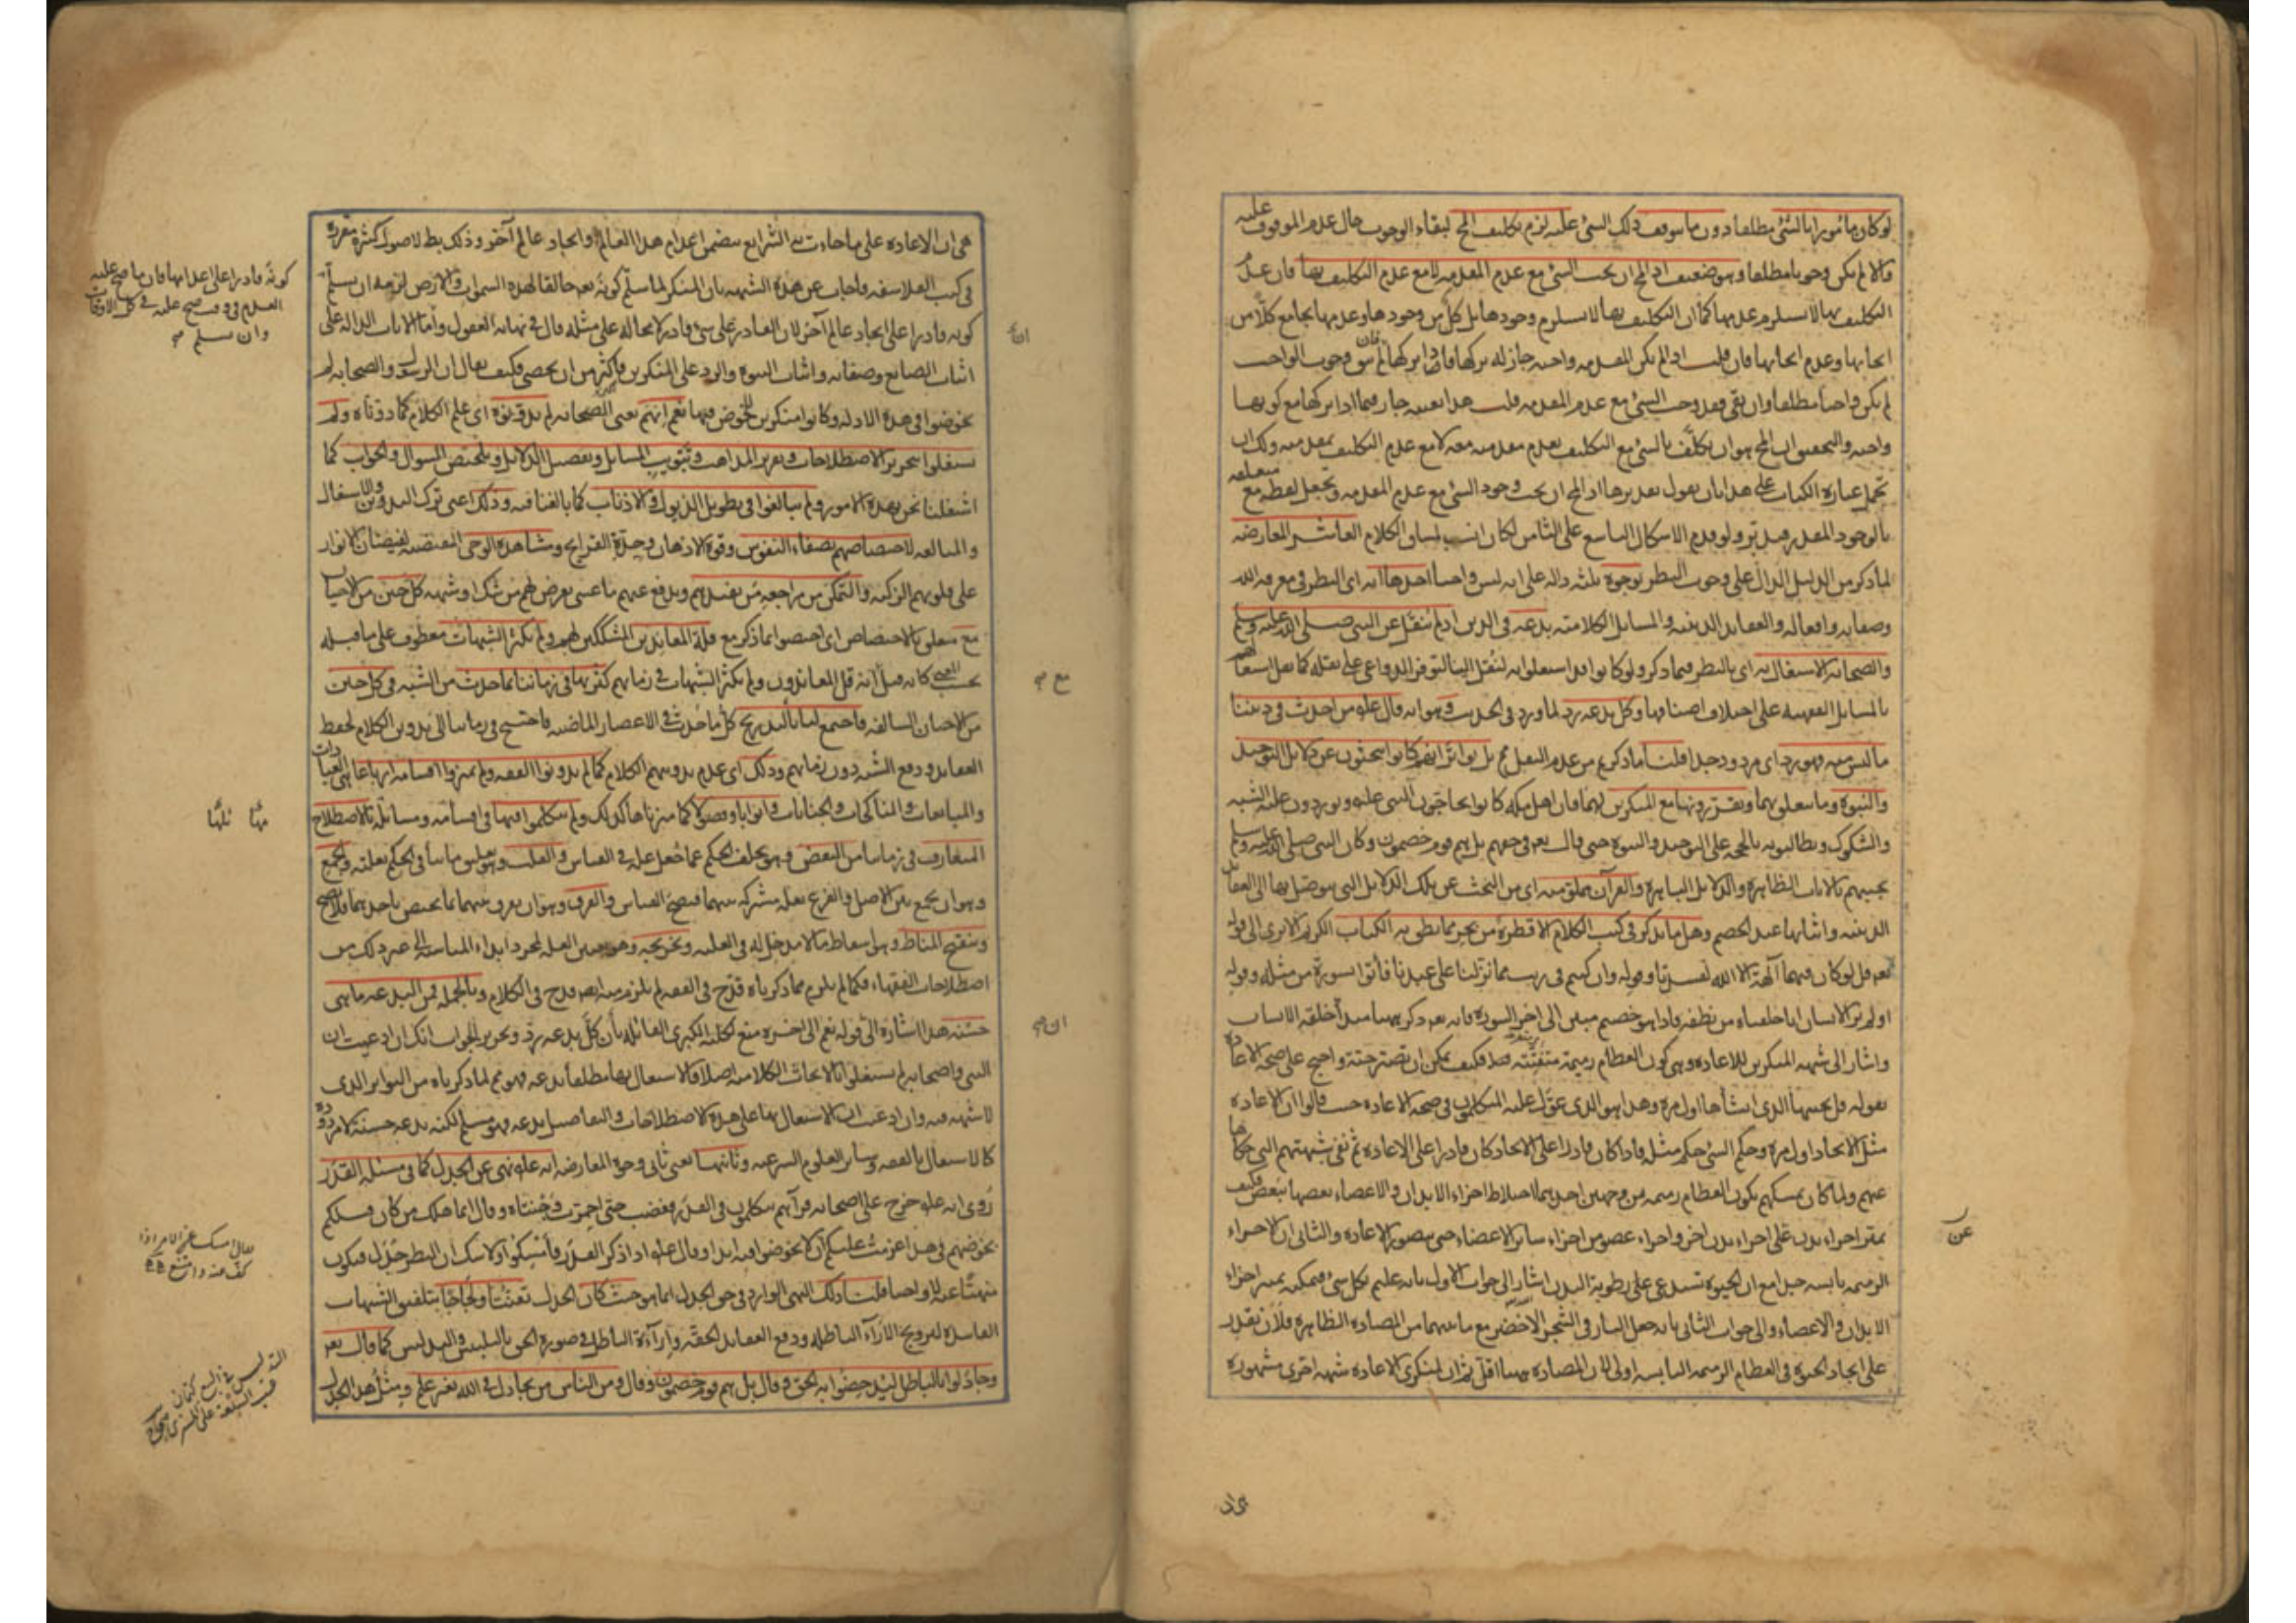 لو كان مأمورا بالشئ مطلقا دون ما يتوقف ذلك الشئ عليه لزم تكليف المح لبقاء الوجوب حال عدم الموقوف عليه
والا لم يكن وجوبا مطلقا وهو ضعيف اذ المح ان يجب الشئ مع عدم المقدمة لا مع عدم التكليف بها فان عدم
التكليف بها لا يستلزم عدمها كما ان التكليف بها لا يستلزم وجودها بل كل من وجودها وعدمها يجامع كلا من
ايجابها وعدم ايجابها فان قلت اذا لم يكن المقدمة واجبة جاز له تركها فاذا تركها فان لم يبق وجوب الواجب
لم يكن واجبا مطلقا وان بقى فقد وجب الشئ مع عدم المقدمة قلت هذا بعينه جار فيما اذا تركها مع كونها
واجبة والتحقيق ان المح هو ان يكلف بالشئ مع التكليف بعدم مقدمته معه لا مع عدم التكليف بمقدمته ولك ان
تحمل عبارة الكتاب على هذا بان تقول تقديرها اذ المح ان يجب وجود الشئ مع عدم المقدمة وتجعل لفظة مع متعلقة
بالوجود المقدر قبل ولو قدم الاشكال التاسع على الثامن لكان انسب لمساق الكلام العاشر المعارضة
لما ذكر من الدليل الدال على وجوب النظر بوجوه ثلثة دالة على انه ليس واجبا احدها انه اى النظر فى معرفة الله
وصفاته وافعاله والعقايد الدينية والمسائل الكلامية بدعة فى الدين اذ لم ينقل عن النبى صلى الله عليه وسلم
والصحابة الاشتغال به اى بالنظر فيما ذكر ولو كانوا قد اشتغلوا به لنقل الينا لتوفر الدواعى على نقله كما نقل اشتغالهم
بالمسائل الفقهية على اختلاف اصنافها وكل بدعة رد لما ورد فى الحديث وهو انه قال علم من احدث فى ديننا
ما ليس منه فهو رد اى مردود جدا قلنا ما ذكرتم من عدم النقل مم بل تواتر انهم كانوا يبحثون عن دلائل التوحيد
والنبوة وما يتعلق بهما ويقررونها مع المنكرين لهما فان اهل مكة كانوا يحاجون النبى علم ويوردون عليه الشبه
والشكوك ويطالبونه بالحجة على التوحيد والنبوة حتى قال تع فى حقهم بل هم قوم خصمون وكان النبى صلى الله عليه وسلم
يجيبهم بالآيات الظاهرة والدلائل الباهرة والقرآن مملو منه اى من البحث عن تلك الدلائل التى يتوصل بها الى العقايد
الدينية واثباتها عند الخصم وهل ما يذكر فى كتب الكلام الا قطرة من بحر مما نطق به الكتاب الكريم الا يرى الى قوله
تع قل لو كان فيهما آلهة الا الله لفسدتا وقوله وان كنتم فى ريب مما نزلنا على عبدنا فأتوا بسورة من مثله وقوله
اولم ير الانسان انا خلقناه من نطفة فاذا هو خصيم مبين الى آخر السورة فانه تع ذكر ههنا مبدأ خلقة الانسان
واشار الى شبهة المنكرين للاعادة وهى كون العظام رميمة متفتتة فكيف يمكن ان تصير حية واحتج على صحة الاعادة
بقوله قل يحييها الذى انشأها اول مرة وهذا هو الذى عول عليه المتكلمون فى صحة الاعادة حيث قالوا ان الاعادة
مثل الايجاد اول مرة وحكم الشئ حكم مثله فاذا كان قادرا على الايجاد كان قادرا على الاعادة ثم نفى شبهتهم التى حكاها
عنهم ولما كان تمسكهم بكون العظام رميمة من وجهين احدهما اختلاط اجزاء الابدان والاعضاء بعضها ببعض فكيف
يميز اجزاء بدن عن اجزاء بدن آخر واجزاء عضو من اجزاء سائر الاعضاء حتى يتصور الاعادة والثانى ان الاجزاء
الرميمة يابسة جدا مع ان الحيوة تستدعى رطوبة البدن اشار الى جواب الاول بانه عليم بكل شئ فيمكنه تمييز اجزاء
الابدان والاعضاء والى جواب الثانى بانه جعل النار فى الشجر الاخضر مع ما بينهما من المضادة الظاهرة فلان يقدر
على ايجاد الحيوة فى العظام الرميمة اليابسة اولى لان المضادة ههنا اقل ثم ان لمنكرى الاعادة شبهة اخرى مشهورة
عن
هى ان الاعادة على ما جاءت به الشرايع تتضمن اعدام هذا العالم وايجاد عالم آخر وذلك بط لاصول كثيرة مقررة
فى كتب الفلاسفة فاجاب عن هذه الشبهة بان المنكر لما سلم كونه تع خالقا لهذه السموات والارض لزمه ان يسلم
كونه قادرا على ايجاد عالم آخر لان القادر على شئ قادر لا محالة على مثله قال فى نهاية العقول واما الآيات الدالة على
اثبات الصانع وصفاته واثبات النبوة والرد على المنكرين فاكثر من ان يحصى فكيف يقال ان الرسول والصحابة لم
يخوضوا فى هذه الادلة وكانوا منكرين للخوض فيها نعم انهم يعنى الصحابة لم يدونوه اى علم الكلام كما دوناه ولم
يشتغلوا بتحرير الاصطلاحات وتقرير المذاهب وتبويب المسايل وتفصيل الدلايل وتلخيص السوال والجواب كما
اشتغلنا نحن بهذه الامور ولم يبالغوا فى تطويل الذيول والاذناب كما بالغنا فيه وذلك اعنى ترك التدوين والاشتغال
والمبالغة لاختصاصهم بصفاء النفوس وقوة الاذهان وحدة القرايح ومشاهدة الوحى المقتضية لفيضان الانوار
على قلوبهم الزكية والتمكن من مراجعة من يفيدهم ويدفع عنهم ما عسى يعرض لهم من شك او شبهة كل حين من الاحيان
مع متعلق بالاختصاص اى اختصوا بما ذكر مع قلة المعاندين المشككين لهم ولم تكثر الشبهات معطوف على ما قبله
بحسب المعنى كانه قيل انه قل المعاندون ولم يكثر الشبهات فى زمانهم كثرتها فى زماننا بما حدث من الشبه فى كل حين
من الاحيان السالفة فاجتمع لنا بالتدريج كل ما حدث فى الاعصار الماضية فاحتيج فى زماننا الى تدوين الكلام لحفظ
العقايد ودفع الشبه دون زمانهم وذلك اى عدم تدوينهم الكلام كما لم يدونوا الفقه ولم يميزوا اقسامه ارباعا هى العبادات
والمبايعات والمناكحات والجنايات وابوابا وفصولا كما ميزناها كذلك ولم يتكلموا فيها فى اقسامه ومسائله بالاصطلاح
المتعارف فى زماننا من النقض وهو تخلف الحكم عما جعل علة فى القياس والقلب وهو تعليق ما ينافى الحكم بعلته والجمع
وهو ان يجمع بين الاصل والفرع بعلة مشتركة بينهما فيصح القياس والفرق وهو ان يفرق بينهما بما يختص باحدهما فلا يصح
وتنقيح المناط وهو اسقاط ما لا مدخل له فى العلية وتخريجه وهو تعيين العلة بمجرد ابداء المناسبة الى غير ذلك من
اصطلاحات الفقهاء فكما لم يلزم مما ذكرناه قدح فى الفقه لم يلزم منه ايضا قدح فى الكلام وبالجملة فمن البدعة ما هى
حسنة هذا اشارة الى قوله نعم الى آخره منع لكلية الكبرى القائلة بأن كل بدعة رد وتحرير الجواب انك ان ادعيت ان
النبى واصحابه لم يشتغلوا بالابحاث الكلامية اصلا فالاشتغال بها مطلقا بدعة فهو مم لما ذكرناه من التواتر الذى
لا شبهة فيه وان ادعيت ان الاشتغال بها على هذه الاصطلاحات والتفاصيل بدعة فهو مسلم لكنه بدعة حسنة لا مردودة
كالاشتغال بالفقه وسائر العلوم الشرعية وثانيها يعنى ثانى وجوه المعارضة انه علم نهى عن الجدل كما فى مسئلة القدر
روى انه علم خرج على اصحابه فرآهم يتكلمون فى القدر فغضب حتى احمرت وجنتاه وقال انما هلك من كان قبلكم
بخوضهم فى هذا عزمت عليكم ان لا تخوضوا فيه ابدا وقال علم اذا ذكر القدر فامسكوا ولا شك ان النظر جدل فيكون
منهيا عنه لا واجبا قلنا ذلك النهى الوارد فى حق الجدل انما هو حيث كان الجدل تعنتا ولجاجا بتلفيق الشبهات
الفاسدة لترويج الآراء الباطلة ودفع العقايد الحقة واراءة الباطل فى صورة الحق بالتلبيس والتدليس كما قال تع
وجادلوا بالباطل ليدحضوا به الحق وقال بل هم قوم خصمون وقال ومن الناس من يجادل فى الله بغير علم ومثل هذا الجدل
كونه قادرا على اعدامها فان ما صح عليه
العدم فى وقت صح عليه فى كل الاوقات
وان يسلم صح
ان
مع صح
منها ثلثها
ان صح
يقال امسك عن الامر اذا
كف عنه وامتنع
التدليس فى البيع كتمان
عيب السلعة على المشترى صحاح